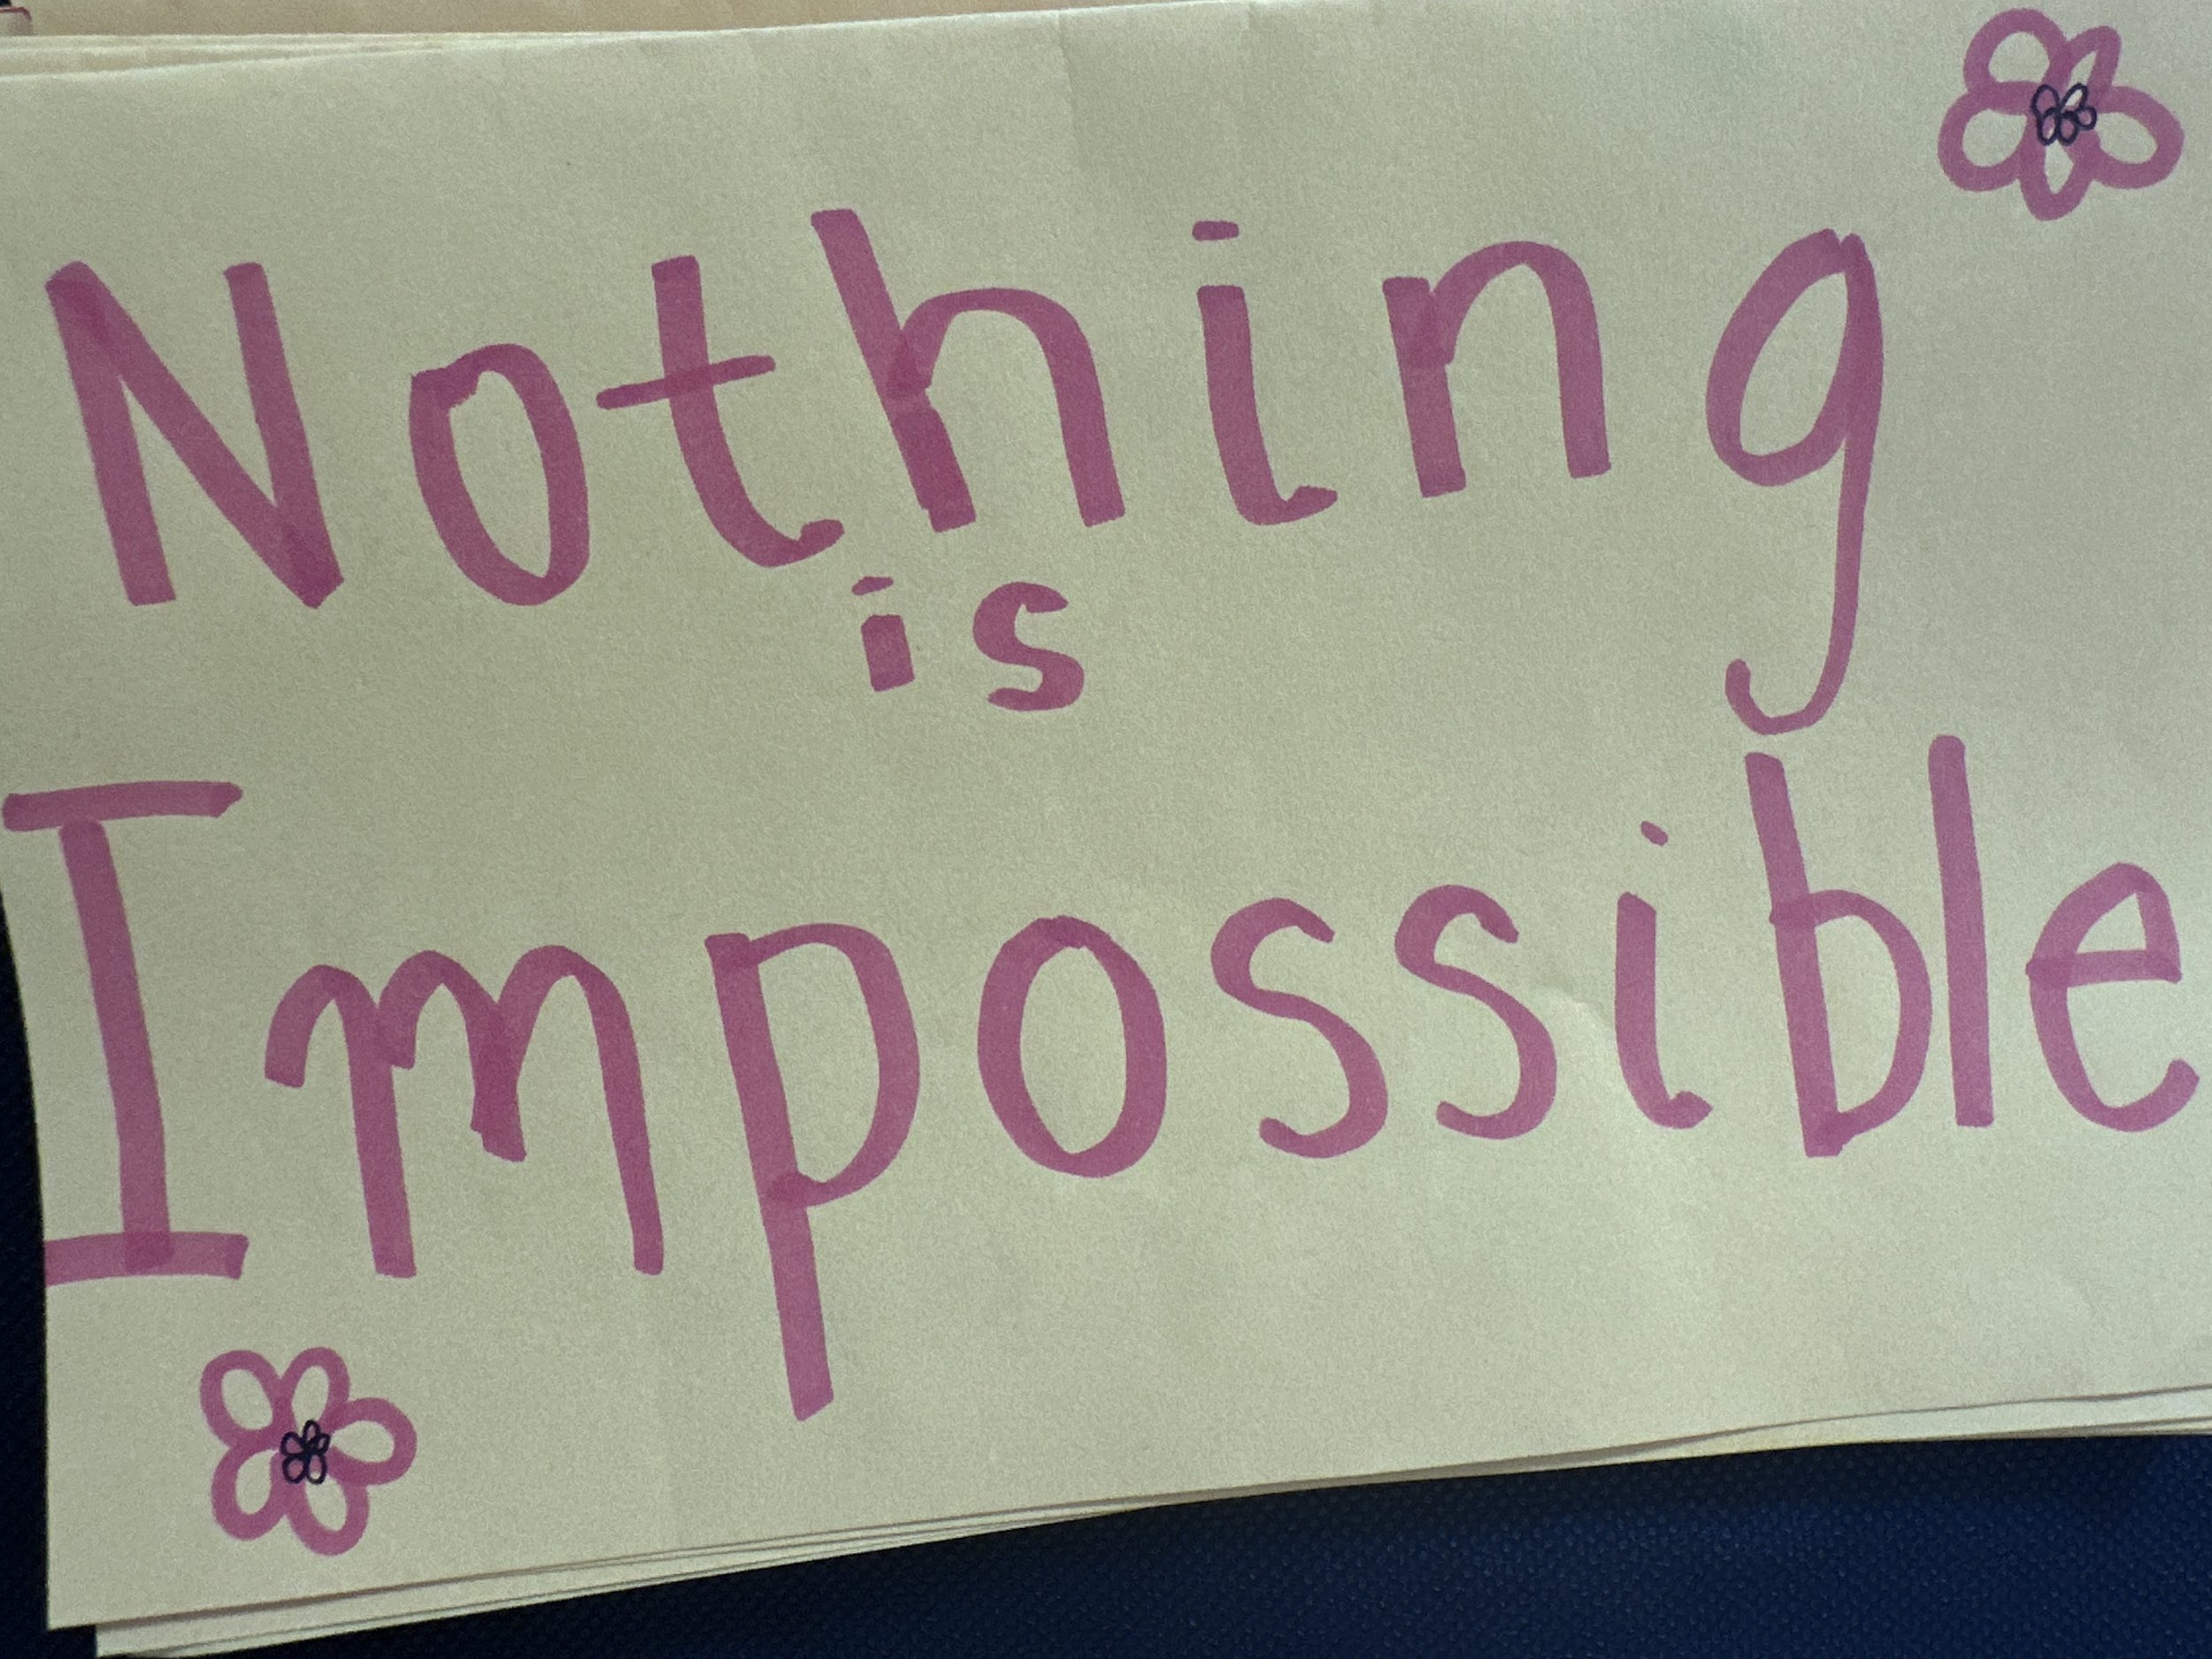 Nothing
is
Impossible